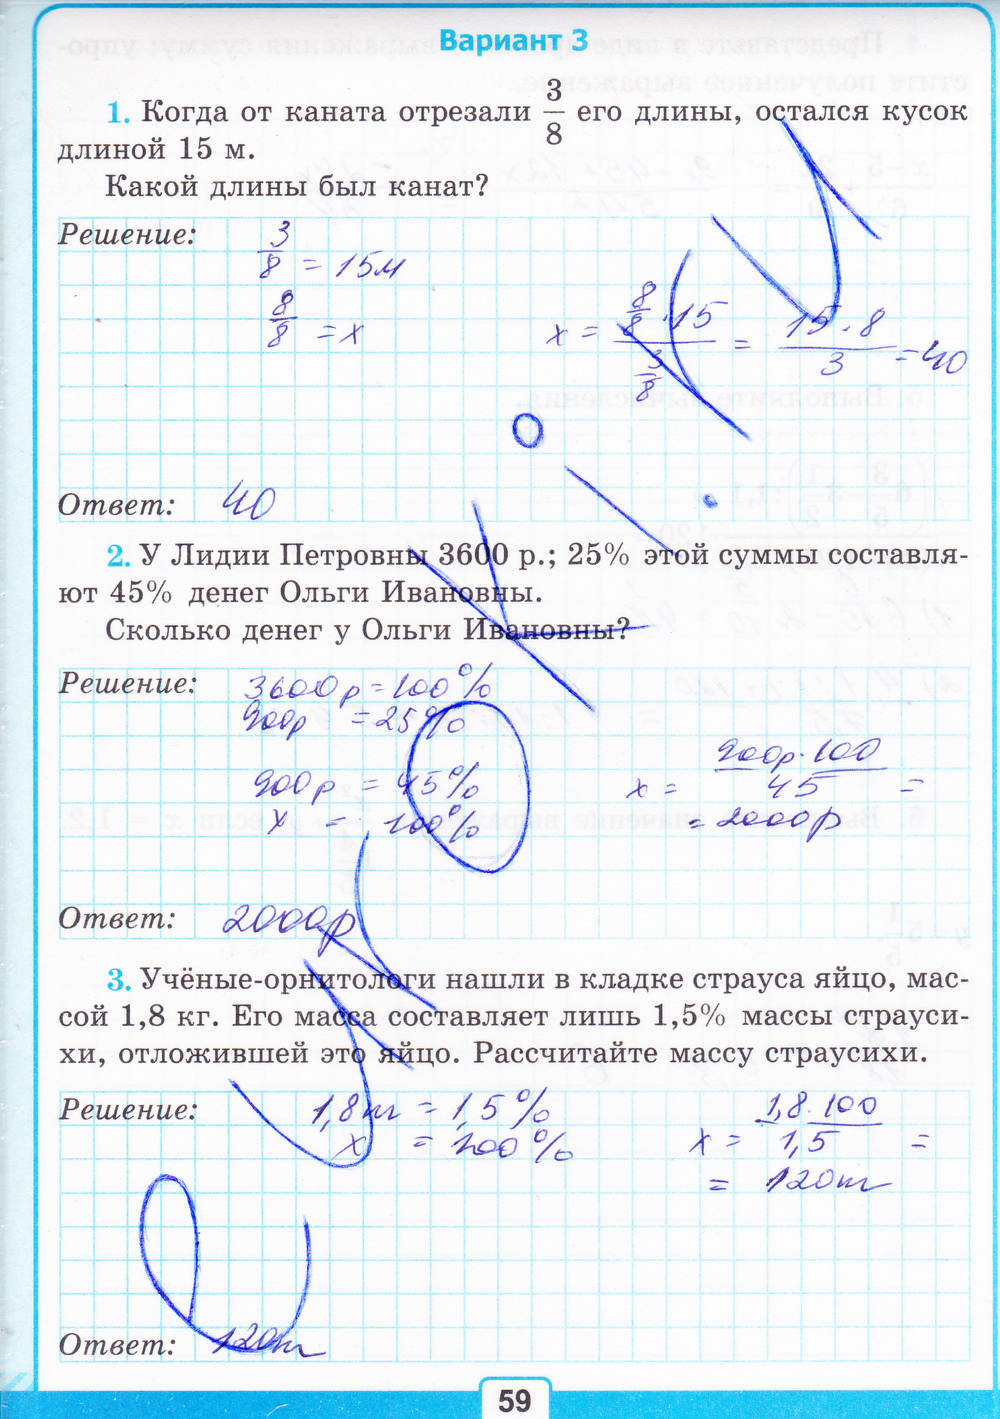 Вариант 3
1. Когда от каната отрезали 3/8 его длины, остался кусок
длиной 15 м.
Какой длины был канат?
Решение:
3/8 = 15м
8/8 = x
x = (8/8 · 15)/(3/8) = (15 · 8)/3 = 40
Ответ: 40
2. У Лидии Петровны 3600 р.; 25% этой суммы составля-
ют 45% денег Ольги Ивановны.
Сколько денег у Ольги Ивановны?
Решение:
3600р = 100%
900р = 25%
900р = 45%
x = 100%
x = (900р · 100)/45 =
= 2000р
Ответ: 2000р
3. Учёные-орнитологи нашли в кладке страуса яйцо, мас-
сой 1,8 кг. Его масса составляет лишь 1,5% массы страуси-
хи, отложившей это яйцо. Рассчитайте массу страусихи.
Решение:
1,8кг = 1,5%
x = 100%
x = (1,8 · 100)/1,5 =
= 120кг
Ответ: 120кг
59